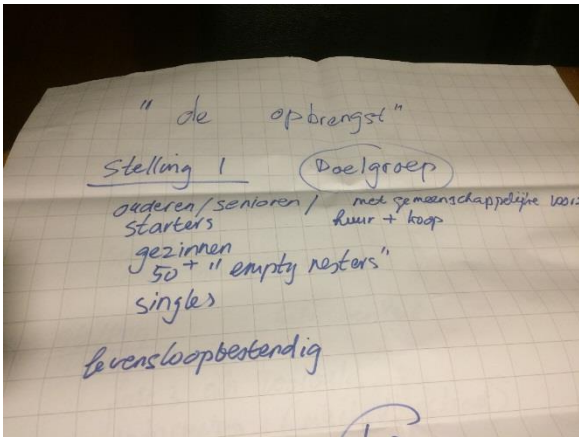 "de opbrengst"
Stelling 1 Doelgroep
ouderen/senioren/ met gemeenschappelijke
starters huur + koop
gezinnen
50+ "empty nesters"
singles
levensloopbestendig